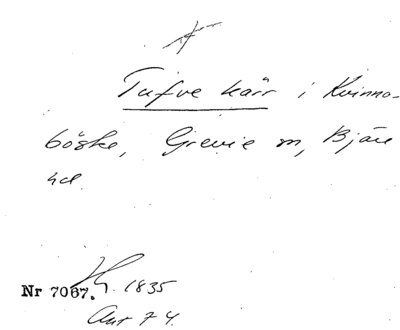 Tufve kärr i Kvinno-
böske, Grevie sn, Bjäre
hd.
Nr 7067. 1835
Ant 74.